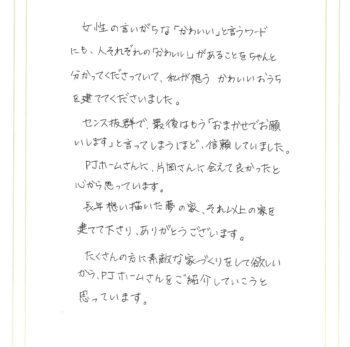 女性の言いがちな「かわいい」と言うワード
にも、人それぞれの「かわいい」があることをちゃんと
分かってくださっていて、私が想う かわいいおうち
を建ててくださいました。
センス抜群で、最後はもう「おまかせでお願
いします」と言ってしまうほど、信頼していました。
PJホームさんに、片岡さんに会えて良かったと
心から思っています。
長年想い描いた夢の家、それ以上の家を
建てて下さり、ありがとうございます。
たくさんの方に素敵な家づくりをして欲しい
から、PJホームさんをご紹介していこうと
思っています。